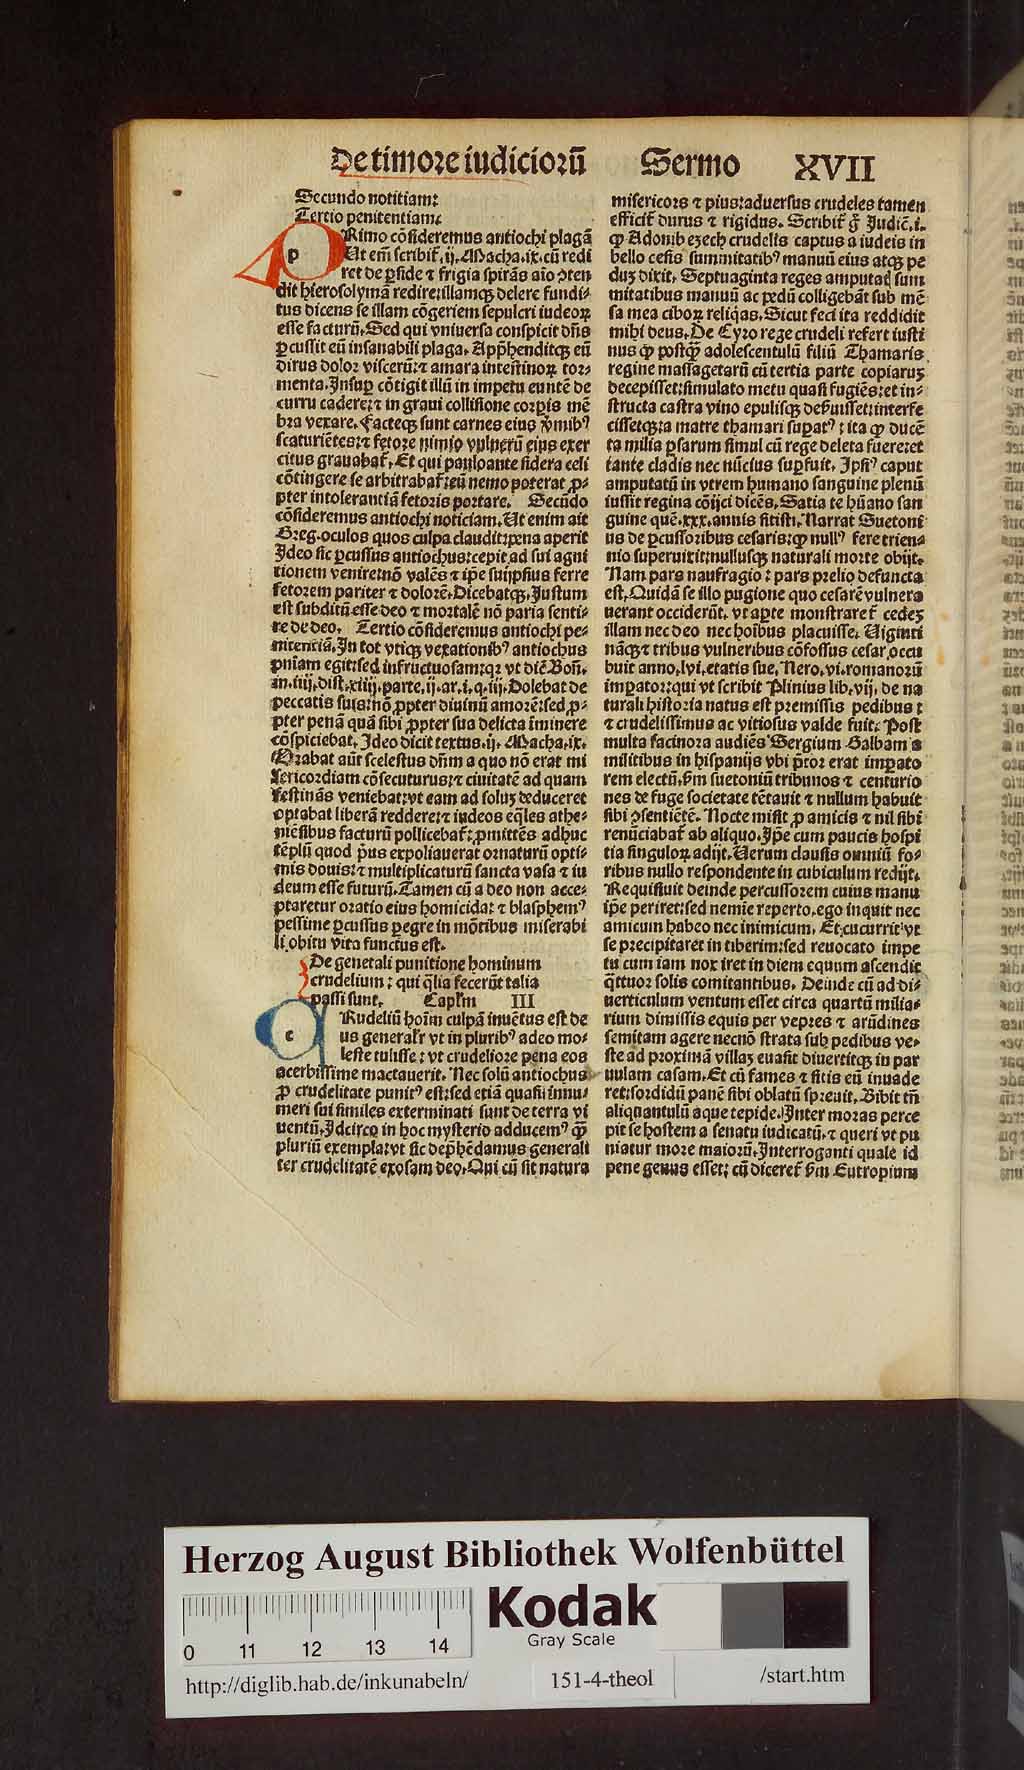 De timore iudiciorū Sermo XVII
Secundo notitiam:
Tertio penitentiam.
PRimo cōsideremus antiochi plagā
Ut em̄ scribit̄.ij.Macha.ix.cū redi
ret de ꝑside ⁊ frigia spirās aīo ↄten
dit hierosolymā redire:illamqꝫ delere fundi⸗
tus dicens se illam cōgeriem sepulcri iudeoꝝ
esse facturū.Sed qui vniuersa conspicit dn̄s
ꝑcussit eū insanabili plaga.App̄henditqꝫ eū
dirus dolor viscerū:⁊ amara intestinoꝝ tor⸗
menta.Insuꝑ cōtigit illū in impetu euntē de
curru cadere:⁊ in graui collisione corꝑis mē
bra vexare.Facteqꝫ sunt carnes eius ꝟmibꝰ
scaturiētes:⁊ fetore nimio vulnerū eius exer
citus grauabat̄.Et qui pauloante sidera celi
cōtingere se arbitrabat̄:eū nemo poterat ꝓ⸗
pter intolerantiā fetoris portare. Secūdo
cōsideremus antiochi noticiam.Ut enim ait
Greg.oculos quos culpa claudit:pena aperit
Ideo sic ꝑcussus antiochus:cepit ad sui agni
tionem venire:nō valēs ⁊ ip̄e suijpsius ferre
fetorem pariter ⁊ dolorē.Dicebatqꝫ.Justum
est subditū esse deo ⁊ mortalē nō paria senti⸗
re de deo. Tertio cōsideremus antiochi pe⸗
nitenciā.In tot vtiqꝫ vexationibꝰ antiochus
pn̄iam egit:sed infructuosam:qꝛ vt dic̄ Bon̄.
in.iiij.dist.xiiij.parte.ij.ar.i.q.iij.Dolebat de
peccatis suis:nō ꝓpter diuinū amorē:sed ꝓ⸗
pter penā quā sibi ꝓpter sua delicta iminere
cōspiciebat.Ideo dicit textus.ij.Macha.ix.
Orabat aūt scelestus dn̄m a quo nō erat mi
sericordiam cōsecuturus:⁊ ciuitatē ad quam
festinās veniebat:vt eam ad soluꝫ deduceret
optabat liberā reddere:⁊ iudeos eq̄les athe⸗
niēsibus facturū pollicebat̄:ꝓmittēs adhuc
tēplū quod p̄us expoliauerat ornaturū opti⸗
mis donis:⁊ multiplicaturū sancta vasa ⁊ iu
deum esse futurū.Tamen cū a deo non acce⸗
ptaretur oratio eius homicida: ⁊ blasphemꝰ
pessime ꝑcussus ꝑegre in mōtibus miserabi
li obitu vita functus est.
De generali punitione hominum
crudelium: qui q̄lia fecerūt talia
passi sunt. Capl'm III
CRudeliū hoīm culpā inuētus est de
us generalr̄ vt in pluribꝰ adeo mo⸗
leste tulisse: vt crudeliore pena eos
acerbissime mactauerit.Nec solū antiochus
ꝓ crudelitate punitꝰ est:sed etiā quasi innu⸗
meri sui similes exterminati sunt de terra vi
uentū.Idcirco in hoc mysterio adducemꝰ qꝫ
pluriū exempla:vt sic dep̄hēdamus generali
ter crudelitatē exosam deo.Qui cū sit natura
misericors ⁊ pius:aduersus crudeles tamen
efficit̄ durus ⁊ rigidus. Scribit̄ g̊ Judic̄.i.
ꝙ Adonibezech crudelis captus a iudeis in
bello cesis summitatibꝰ manuū eius atqꝫ pe
duꝫ dixit. Septuaginta reges amputatꝭ sum
mitatibus manuū ac pedū colligebāt sub mē
sa mea ciboꝝ reliq̄as.Sicut feci ita reddidit
mihi deus.De Cyro rege crudeli refert iusti
nus ꝙ postqꝫ adolescentulū filiū Thamaris
regine massagetarū cū tertia parte copiaruꝫ
decepisset:simulato metu quasi fugiēs:et in⸗
structa castra vino epulisqꝫ deseruisset:interfe
cissetqꝫ:a matre thamari suꝑatꝰ: ita ꝙ ducē
ta milia ꝑsarum simul cū rege deleta fuere:et
tante cladis nec nūcius suꝑfuit. Ipsiꝰ caput
amputatū in vtrem humano sanguine plenū
iussit regina cōijci dicēs. Satia te hūano san
guine quē.xxx.annis sitisti.Narrat Suetoni
us de ꝑcussoribus cesaris:ꝙ nullꝰ fere trien⸗
nio superuixit:nullusqꝫ naturali morte obijt.
Nam pars naufragio: pars prelio defuncta
est.Quidā se illo pugione quo cesarē vulnera
uerant occiderūt. vt aꝑte monstraret̄ cedeꝫ
illam nec deo nec hoībus placuisse. Uiginti
nāqꝫ ⁊ tribus vulneribus cōfossus cesar occu
buit anno.lvi.etatis sue.Nero.vi.romanorū
imꝑator:qui vt scribit Plinius lib.vij. de na
turali historia natus est premissis pedibus:
⁊ crudelissimus ac vitiosus valde fuit. Post
multa facinora audiēs Sergium Galbam a
militibus in hispanijs vbi p̄tor erat imꝑato
rem electū.ẜm suetoniū tribunos ⁊ centurio
nes de fuge societate tētauit ⁊ nullum habuit
sibi ↄsentiētē. Nocte misit ꝓ amicis ⁊ nil sibi
renūciabat̄ ab aliquo.Ip̄e cum paucis hospi
tia singuloꝝ adijt.Uerum clausis omniū fo⸗
ribus nullo respondente in cubiculum redijt.
Requisiuit deinde percussorem cuius manu
ip̄e periret:sed nemīe reperto.ego inquit nec
amicum habeo nec inimicum. Et cucurrit vt
se precipitaret in tiberim:sed reuocato impe
tu cum iam nox iret in diem equum ascendit
q̄ttuor solis comitantibus. Deinde cū ad di⸗
uerticulum ventum esset circa quartū milia⸗
rium dimissis equis per vepres ⁊ arūdines
semitam agere necnō strata sub pedibus ve⸗
ste ad proximā villaꝫ euasit diuertitqꝫ in par
uulam casam.Et cū fames ⁊ sitis eū inuade
ret:sordidū panē sibi oblatū spreuit.Bibit tn̄
aliquantulū aque tepide.Inter moras perce
pit se hostem a senatu iudicatū.⁊ queri vt pu
niatur more maiorū.Interroganti quale id
pene genus esset: cū diceret̄ ẜm Eutropium
Herzog August Bibliothek Wolfenbüttel
Kodak
Gray Scale
0 11 12 13 14
http://diglib.hab.de/inkunabeln/ 151-4-theol /start.htm